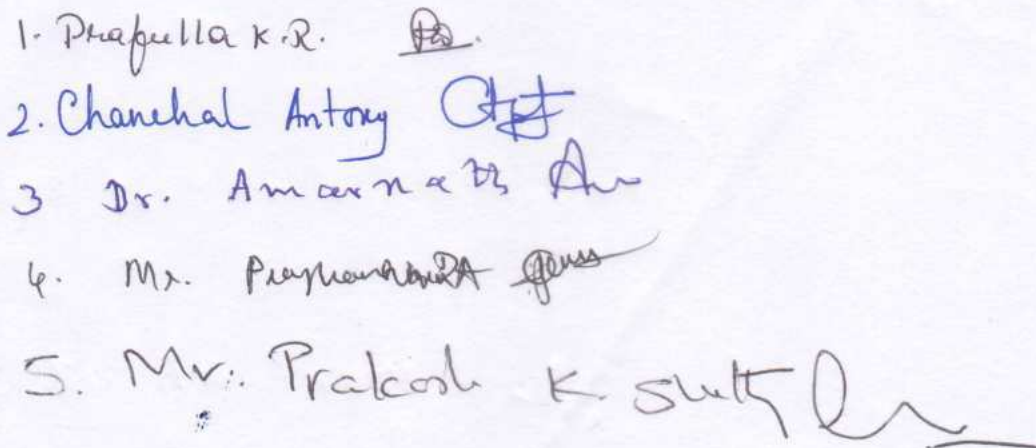 1. Prafulla K.R.
2. Chanchal Antony
3 Dr. Amarnath
4. Mr.
5. Mr. Prakash K. Shetty